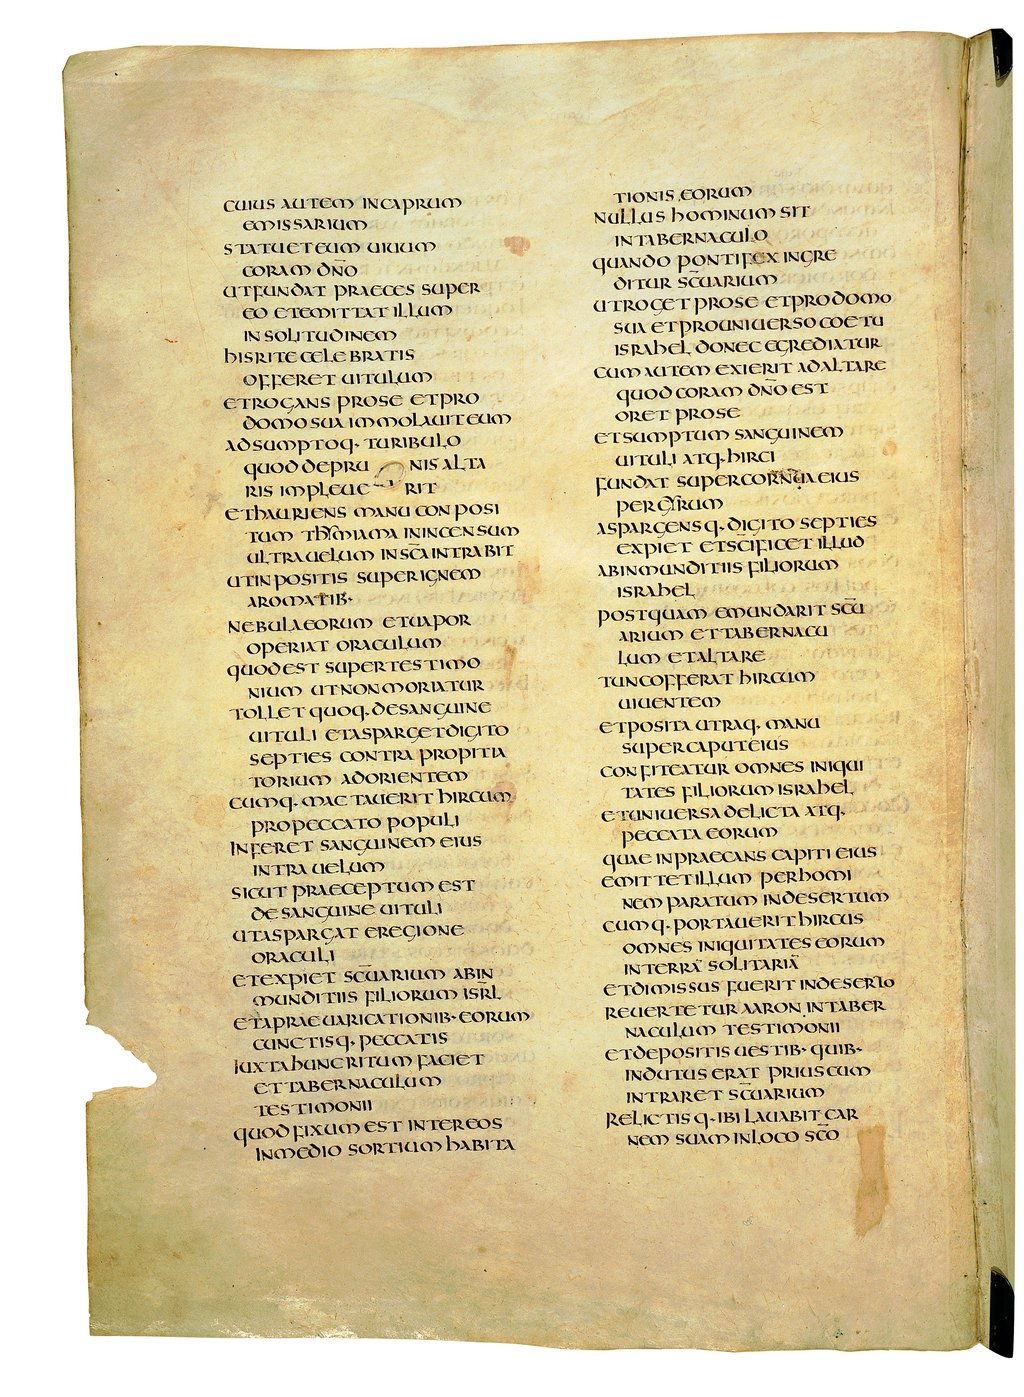 CUIUS AUTEM INCAPRUM
EMISSARIUM
STATUETEUM UIUUM
CORAM DN̄O
UTFUNDAT PRAECES SUPER
EO ETEMITTAT ILLUM
IN SOLITUDINEM
HISRITE CELEBRATIS
OFFERET UITULUM
ETROGANS PROSE ETPRO
DOMO SUA IMMOLAUIT EUM
ADSUMPTOQ· TURIBULO
QUOD DEPRU NIS ALTA
RIS IMPLEUE RIT
ETHAURIENS MANU CONPOSI
TUM THYMIAMA ININCENSUM
ULTRAUELUM INSC̄A INTRABIT
UTINPOSITIS SUPERIGNEM
AROMATIB·
NEBULAEORUM ETUAPOR
OPERIAT ORACULUM
QUODEST SUPERTESTIMO
NIUM UTNONMORIATUR
TOLLET QUOQ· DESANGUINE
UITULI ETASPARGETDIGITO
SEPTIES CONTRA PROPITIA
TORIUM ADORIENTEM
CUMQ· MACTAUERIT HIRCUM
PROPECCATO POPULI
INFERET SANGUINEM EIUS
INTRA UELUM
SICUT PRAECEPTUM EST
DE SANGUINE UITULI
UTASPARGAT EREGIONE
ORACULI
ETEXPIET SC̄UARIUM ABIN
MUNDITIIS FILIORUM ISR̄L
ETAPRAEUARICATIONIB· EORUM
CUNCTISQ· PECCATIS
IUXTAHUNCRITUM FACIET
ETTABERNACULUM
TESTIMONII
QUOD FIXUM EST INTEREOS
INMEDIO SORTIUM HABITA
TIONIS EORUM
NULLUS HOMINUM SIT
INTABERNACULO
QUANDO PONTIFEX INGRE
DITUR SC̄UARIUM
UTROGET PROSE ETPRODOMO
SUA ETPROUNIUERSO COETU
ISRAHEL DONEC EGREDIATUR
CUM AUTEM EXIERIT ADALTARE
QUOD CORAM DN̄O EST
ORET PROSE
ETSUMPTUM SANGUINEM
UITULI ATQ· HIRCI
FUNDAT SUPERCORNUA EIUS
PERGYRUM
ASPARGENSQ· DIGITO SEPTIES
EXPIET ETSC̄IFICET ILLUD
ABINMUNDITIIS FILIORUM
ISRAHEL
POSTQUAM EMUNDARIT SC̄U
ARIUM ETTABERNACU
LUM ETALTARE
TUNCOFFERAT HIRCUM
UIUENTEM
ETPOSITA UTRAQ· MANU
SUPERCAPUTEIUS
CONFITEATUR OMNES INIQUI
TATES FILIORUM ISRAHEL
ETUNIUERSA DELICTA ATQ·
PECCATA EORUM
QUAE INPRAECANS CAPITI EIUS
EMITTETILLUM PERHOMI
NEM PARATUM INDESERTUM
CUMQ· PORTAUERIT HIRCUS
OMNES INIQUITATES EORUM
INTERRĀ SOLITARIĀ
ETDIMISSUS FUERIT INDESERTO
REUERTETUR AARON INTABER
NACULUM TESTIMONII
ETDEPOSITIS UESTIB· QUIB·
INDUTUS ERAT PRIUSCUM
INTRARET SC̄UARIUM
RELICTISQ· IBI LAUABIT CAR
NEM SUAM INLOCO SC̄O